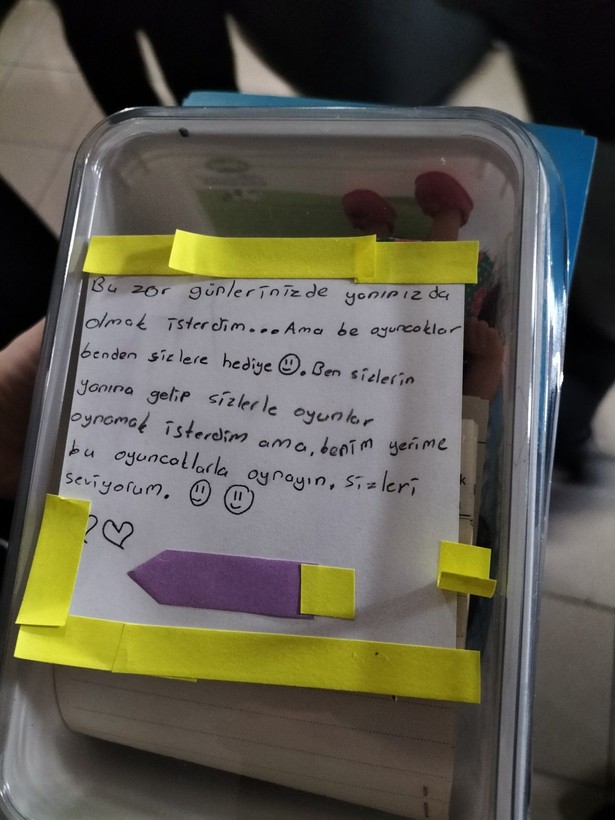 Bu zor günlerinizde yanınızda
olmak isterdim... Ama be oyuncaklar
benden sizlere hediye ☺. Ben sizlerin
yanına gelip sizlerle oyunlar
oynamak isterdim ama, benim yerime
bu oyuncaklarla oynayın. Sizleri
seviyorum. ☺ ☺
♡♡
k